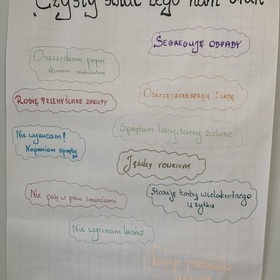 "Czysty świat tego nam brak
SEGREGUJĘ ODPADY
Oszczędzam papier
ROBIĘ PRZEMYŚLANE ZAKUPY
Oszczędzam energię i wodę
Nie wyrzucam!
Naprawiam sprzęty
Sprzątam lasy, tereny zielone
Jeżdżę rowerem
Nie palę w piecu śmieciami
Stosuję torby wielokrotnego
użytku
Nie wycinam lasów